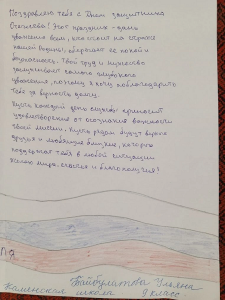 Поздравляю тебя с Днем защитника
Отечества! Этот праздник - дань
уважения всем, кто стоит на страже
нашей Родины, оберегает ее покой и
безопасность. Твой труд и мужество
заслуживают самого глубокого
уважения, поэтому я хочу поблагодарить
тебя за верность долгу.
Пусть каждый день службы приносит
удовлетворение от осознания важности
твоей миссии. Пусть рядом будут верные
друзья и любящие близкие, которые
поддержат тебя в любой ситуации.
Желаю мира, счастья и благополучия!
Тайбулатова Ульяна
Каменская школа 9 класс